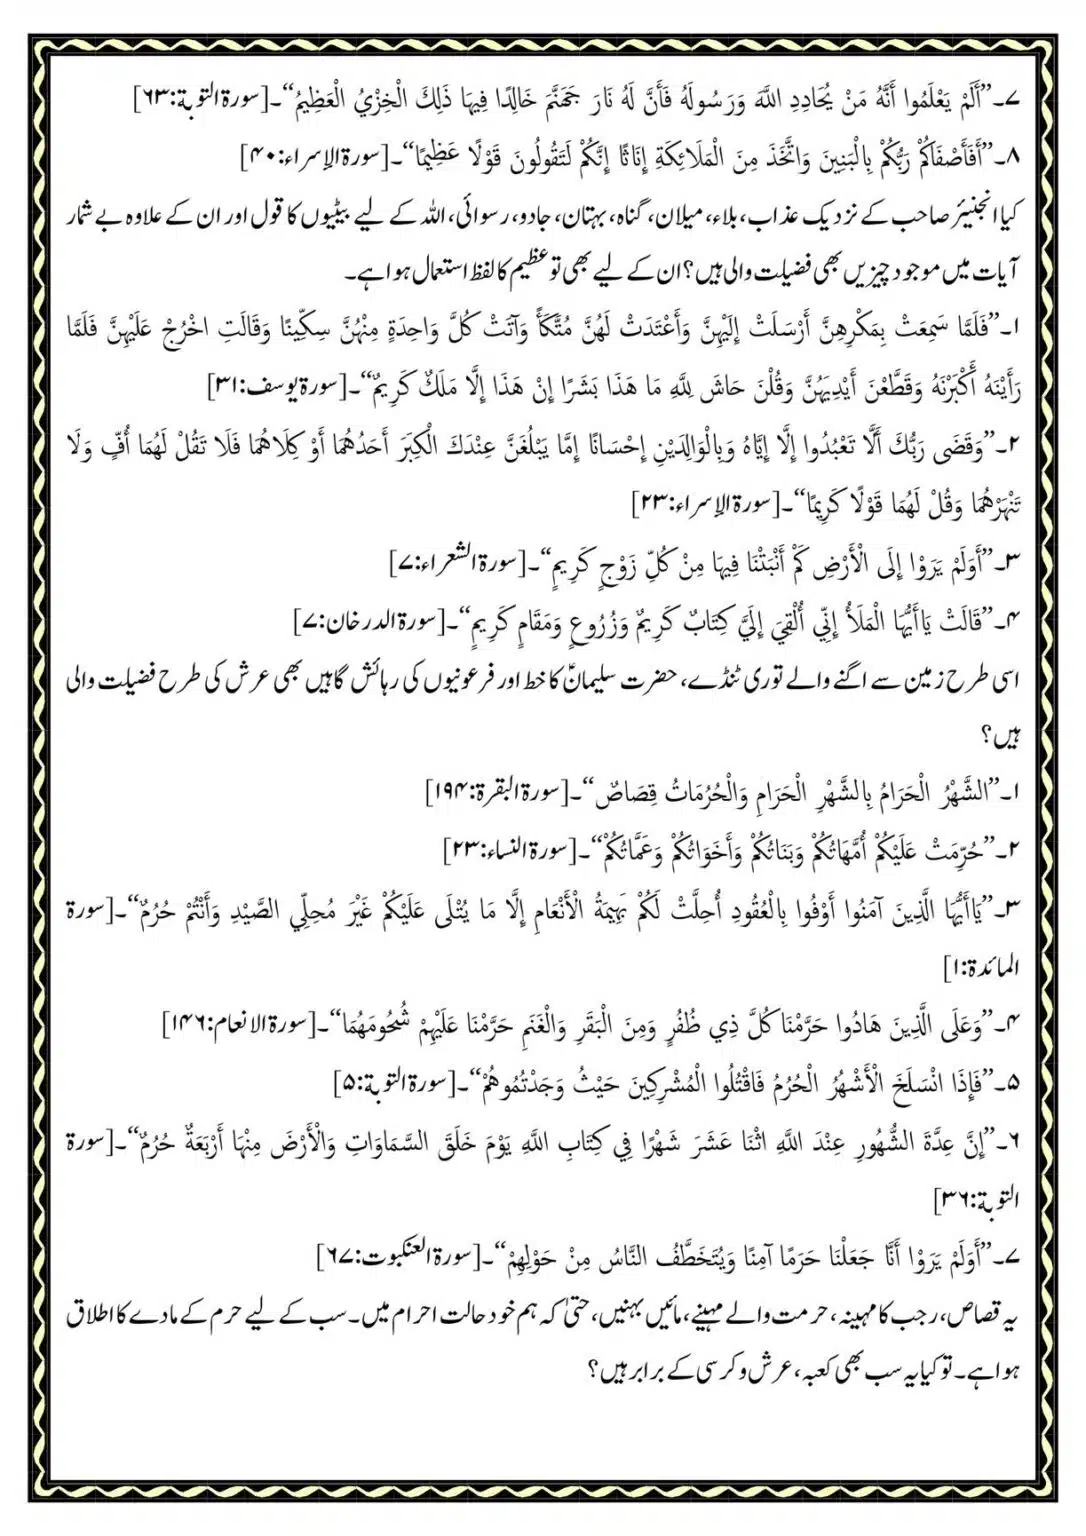 ۷۔”أَلَمْ يَعْلَمُوا أَنَّهُ مَنْ يُحَادِدِ اللَّهَ وَرَسُولَهُ فَأَنَّ لَهُ نَارَ جَهَنَّمَ خَالِدًا فِيهَا ذَلِكَ الْخِزْيُ الْعَظِيمُ“۔[سورۃ التوبۃ:۶۳]
۸۔”أَفَأَصْفَاكُمْ رَبُّكُمْ بِالْبَنِينَ وَاتَّخَذَ مِنَ الْمَلَائِكَةِ إِنَاثًا إِنَّكُمْ لَتَقُولُونَ قَوْلًا عَظِيمًا“۔[سورۃ الإسراء:۴۰]
کیا انجنیئر صاحب کے نزدیک عذاب، بلاء، میلان، گناہ، بہتان، جادو، رسوائی، اللہ کے لیے بیٹیوں کا قول اور ان کے علاوہ بے شمار
آیات میں موجود چیزیں بھی فضیلت والی ہیں؟ ان کے لیے بھی تو عظیم کا لفظ استعمال ہوا ہے۔
۱۔”فَلَمَّا سَمِعَتْ بِمَكْرِهِنَّ أَرْسَلَتْ إِلَيْهِنَّ وَأَعْتَدَتْ لَهُنَّ مُتَّكَأً وَآتَتْ كُلَّ وَاحِدَةٍ مِنْهُنَّ سِكِّينًا وَقَالَتِ اخْرُجْ عَلَيْهِنَّ فَلَمَّا
رَأَيْنَهُ أَكْبَرْنَهُ وَقَطَّعْنَ أَيْدِيَهُنَّ وَقُلْنَ حَاشَ لِلَّهِ مَا هَذَا بَشَرًا إِنْ هَذَا إِلَّا مَلَكٌ كَرِيمٌ“۔[سورۃ یوسف:۳۱]
۲۔”وَقَضَى رَبُّكَ أَلَّا تَعْبُدُوا إِلَّا إِيَّاهُ وَبِالْوَالِدَيْنِ إِحْسَانًا إِمَّا يَبْلُغَنَّ عِنْدَكَ الْكِبَرَ أَحَدُهُمَا أَوْ كِلَاهُمَا فَلَا تَقُلْ لَهُمَا أُفٍّ وَلَا
تَنْهَرْهُمَا وَقُلْ لَهُمَا قَوْلًا كَرِيمًا“۔[سورۃ الإسراء:۲۳]
۳۔”أَوَلَمْ يَرَوْا إِلَى الْأَرْضِ كَمْ أَنْبَتْنَا فِيهَا مِنْ كُلِّ زَوْجٍ كَرِيمٍ“۔[سورۃ الشعراء:۷]
۴۔”قَالَتْ يَاأَيُّهَا الْمَلَأُ إِنِّي أُلْقِيَ إِلَيَّ كِتَابٌ كَرِيمٌ وَزُرُوعٍ وَمَقَامٍ كَرِيمٍ“۔[سورۃ الدرخان:۷]
اسی طرح زمین سے اگنے والے توری ٹنڈے، حضرت سلیمانؑ کا خط اور فرعونیوں کی رہائش گاہیں بھی عرش کی طرح فضیلت والی
ہیں؟
۱۔”الشَّهْرُ الْحَرَامُ بِالشَّهْرِ الْحَرَامِ وَالْحُرُمَاتُ قِصَاصٌ“۔[سورۃ البقرۃ:۱۹۴]
۲۔”حُرِّمَتْ عَلَيْكُمْ أُمَّهَاتُكُمْ وَبَنَاتُكُمْ وَأَخَوَاتُكُمْ وَعَمَّاتُكُمْ“۔[سورۃ النساء:۲۳]
۳۔”يَاأَيُّهَا الَّذِينَ آمَنُوا أَوْفُوا بِالْعُقُودِ أُحِلَّتْ لَكُمْ بَهِيمَةُ الْأَنْعَامِ إِلَّا مَا يُتْلَى عَلَيْكُمْ غَيْرَ مُحِلِّي الصَّيْدِ وَأَنْتُمْ حُرُمٌ“۔[سورۃ
المائدۃ:۱]
۴۔”وَعَلَى الَّذِينَ هَادُوا حَرَّمْنَا كُلَّ ذِي ظُفُرٍ وَمِنَ الْبَقَرِ وَالْغَنَمِ حَرَّمْنَا عَلَيْهِمْ شُحُومَهُمَا“۔[سورۃ الانعام:۱۴۶]
۵۔”فَإِذَا انْسَلَخَ الْأَشْهُرُ الْحُرُمُ فَاقْتُلُوا الْمُشْرِكِينَ حَيْثُ وَجَدْتُمُوهُمْ“۔[سورۃ التوبۃ:۵]
۶۔”إِنَّ عِدَّةَ الشُّهُورِ عِنْدَ اللَّهِ اثْنَا عَشَرَ شَهْرًا فِي كِتَابِ اللَّهِ يَوْمَ خَلَقَ السَّمَاوَاتِ وَالْأَرْضَ مِنْهَا أَرْبَعَةٌ حُرُمٌ“۔[سورۃ
التوبۃ:۳۶]
۷۔”أَوَلَمْ يَرَوْا أَنَّا جَعَلْنَا حَرَمًا آمِنًا وَيُتَخَطَّفُ النَّاسُ مِنْ حَوْلِهِمْ“۔[سورۃ العنکبوت:۶۷]
یہ قصاص، رجب کا مہینہ، حرمت والے مہینے، مائیں بہنیں، حتیٰ کہ ہم خود حالت احرام میں۔ سب کے لیے حرم کے مادے کا اطلاق
ہوا ہے۔ تو کیا یہ سب بھی کعبہ، عرش و کرسی کے برابر ہیں؟